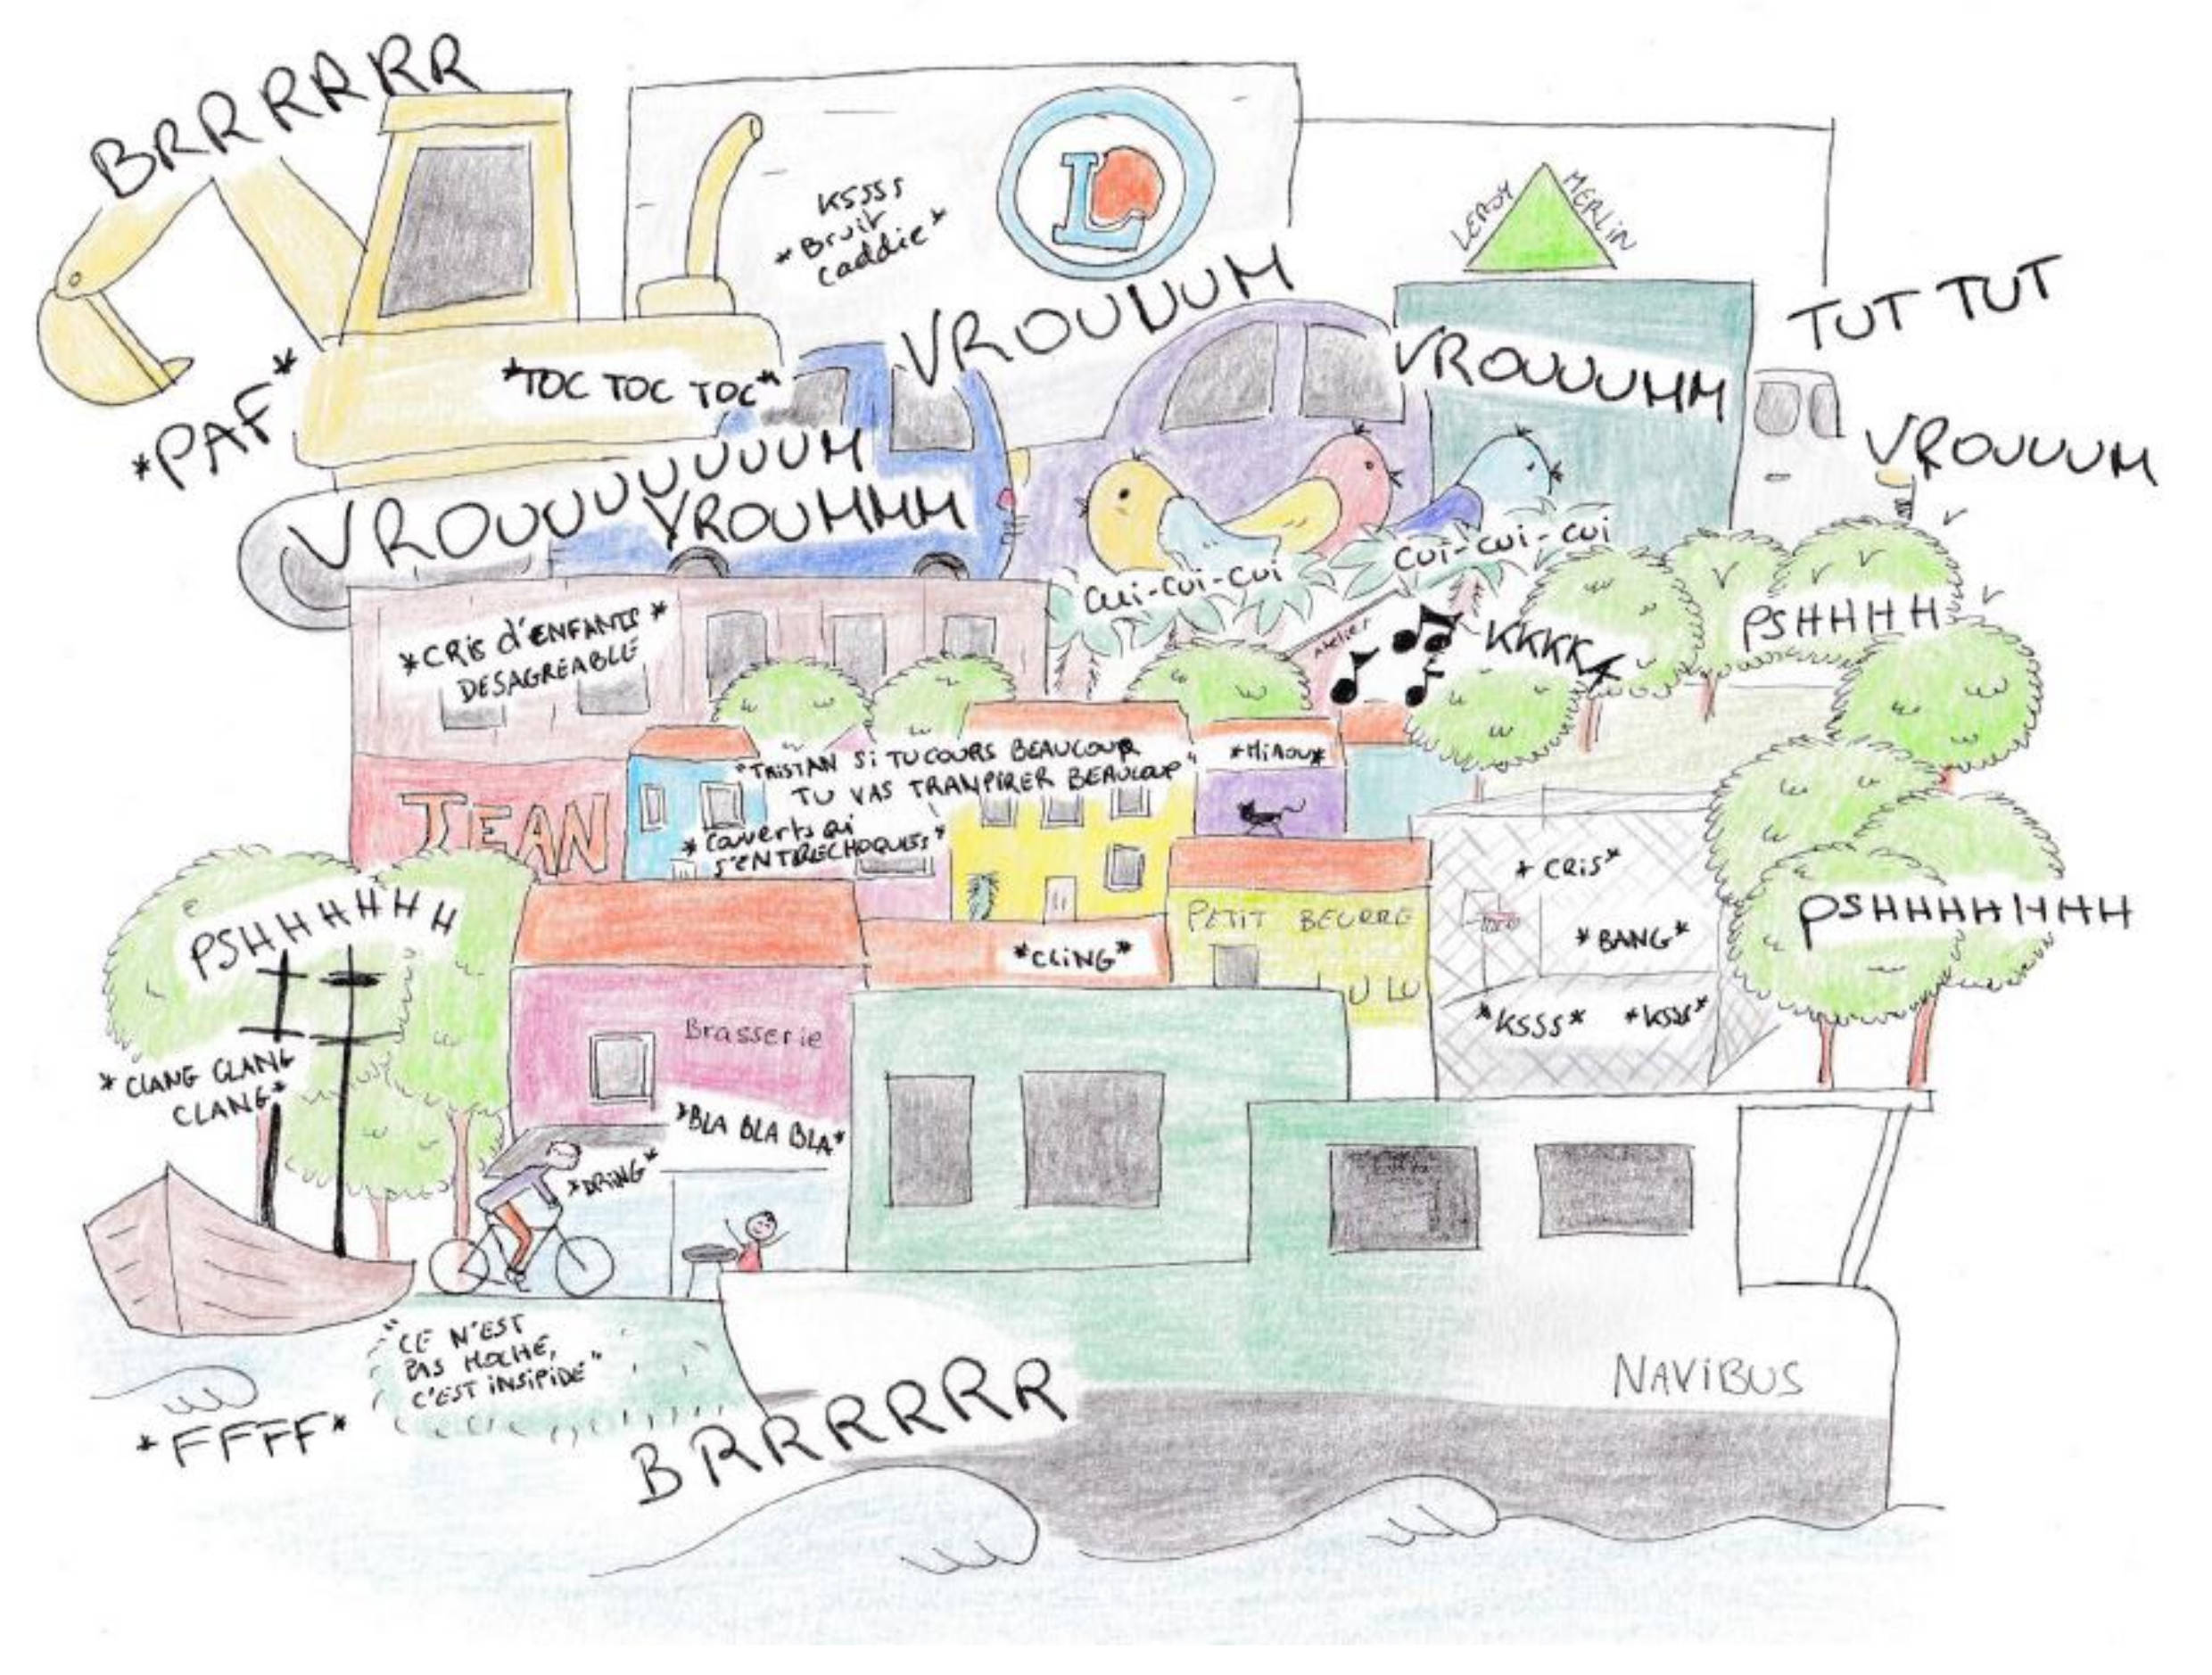 BRRRRRR
KSSSS
*Bruit
caddie*
L
LEROY MERLIN
TUT TUT
VROUUUUM
VROUUUUMM
*TOC TOC TOC*
*PAF*
VROUUUM
VROUUUUUUUUM
VROUMMM
CUI-CUI-CUI
CUI-CUI-CUI
*CRiS d'ENFANTS*
DESAGREABLE
Atelier
KKKKK
PSHHHH
"TRISTAN Si TU COURS BEAUCOUP
TU VAS TRANPIRER BEAUCOUP"
*MiAOU*
JEAN
*Couverts qi
S'ENTRECHOQUES*
*CRiS*
PSHHHHHH
PETIT BEURRE
LU LU
*CLiNG*
*BANG*
PSHHHHHHH
*KSSS* *KSSS*
Brasserie
*CLANG CLANG
CLANG*
*BLA BLA BLA*
*DRiNG*
"CE N'EST
PAS MOCHE,
C'EST iNSiPiDE"
NAViBUS
*FFFF*
BRRRRRR